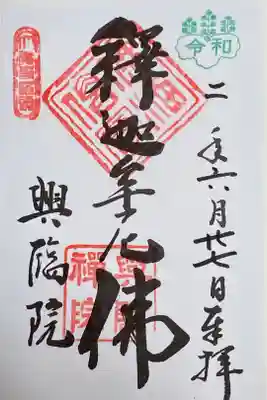 令和
二年六月廿七日奉拝
釋迦牟尼佛
興臨
禪院
興臨院